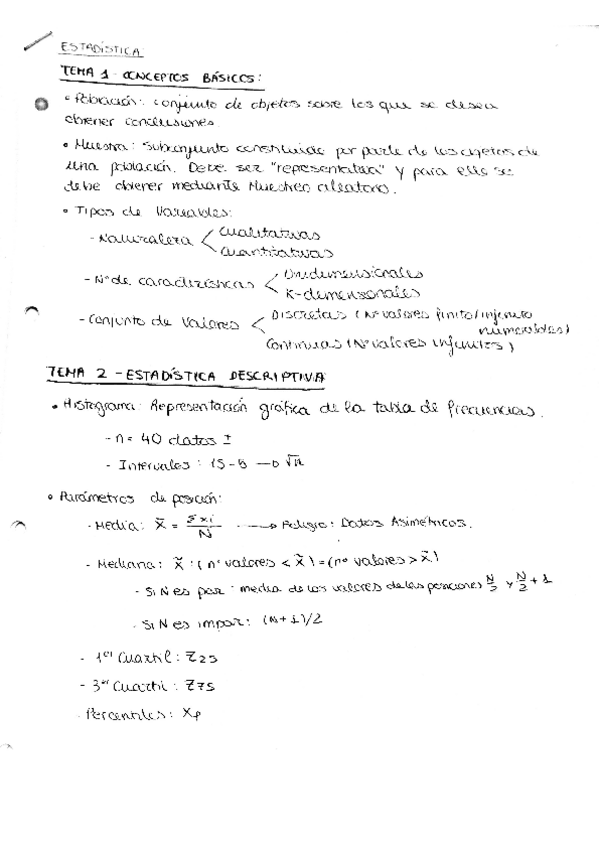 ESTADÍSTICA:
TEMA 1 - CONCEPTOS BÁSICOS:
• Población: conjunto de objetos sobre los que se desea
obtener conclusiones
• Muestra: Subconjunto constituido por parte de los objetos de
una población. Debe ser "representativa" y para ello se
debe obtener mediante Muestreo aleatorio.
• Tipos de Variables:
- Naturaleza < Cualitativas
Cuantitativas
- Nº de características < Unidimensionales
K-dimensionales
- Conjunto de Valores < Discretas (Nº valores finito/infinito
numerables)
Continuas (Nº valores infinitos)
TEMA 2 - ESTADÍSTICA DESCRIPTIVA
• Histograma: Representación gráfica de la tabla de frecuencias.
- n = 40 datos ±
- Intervalos: 15-5 → √n
• Parámetros de posición:
- Media: x̄ = Σxi / N → Peligro: Datos Asimétricos.
- Mediana: x̃ : (nº valores < x̃) = (nº valores > x̃)
- Si N es par: media de los valores de las posiciones N/2 y N/2 + 1
- Si N es impar: (N+1)/2
- 1er Cuartil: Z25
- 3er Cuartil: Z75
. Percentiles: Xp